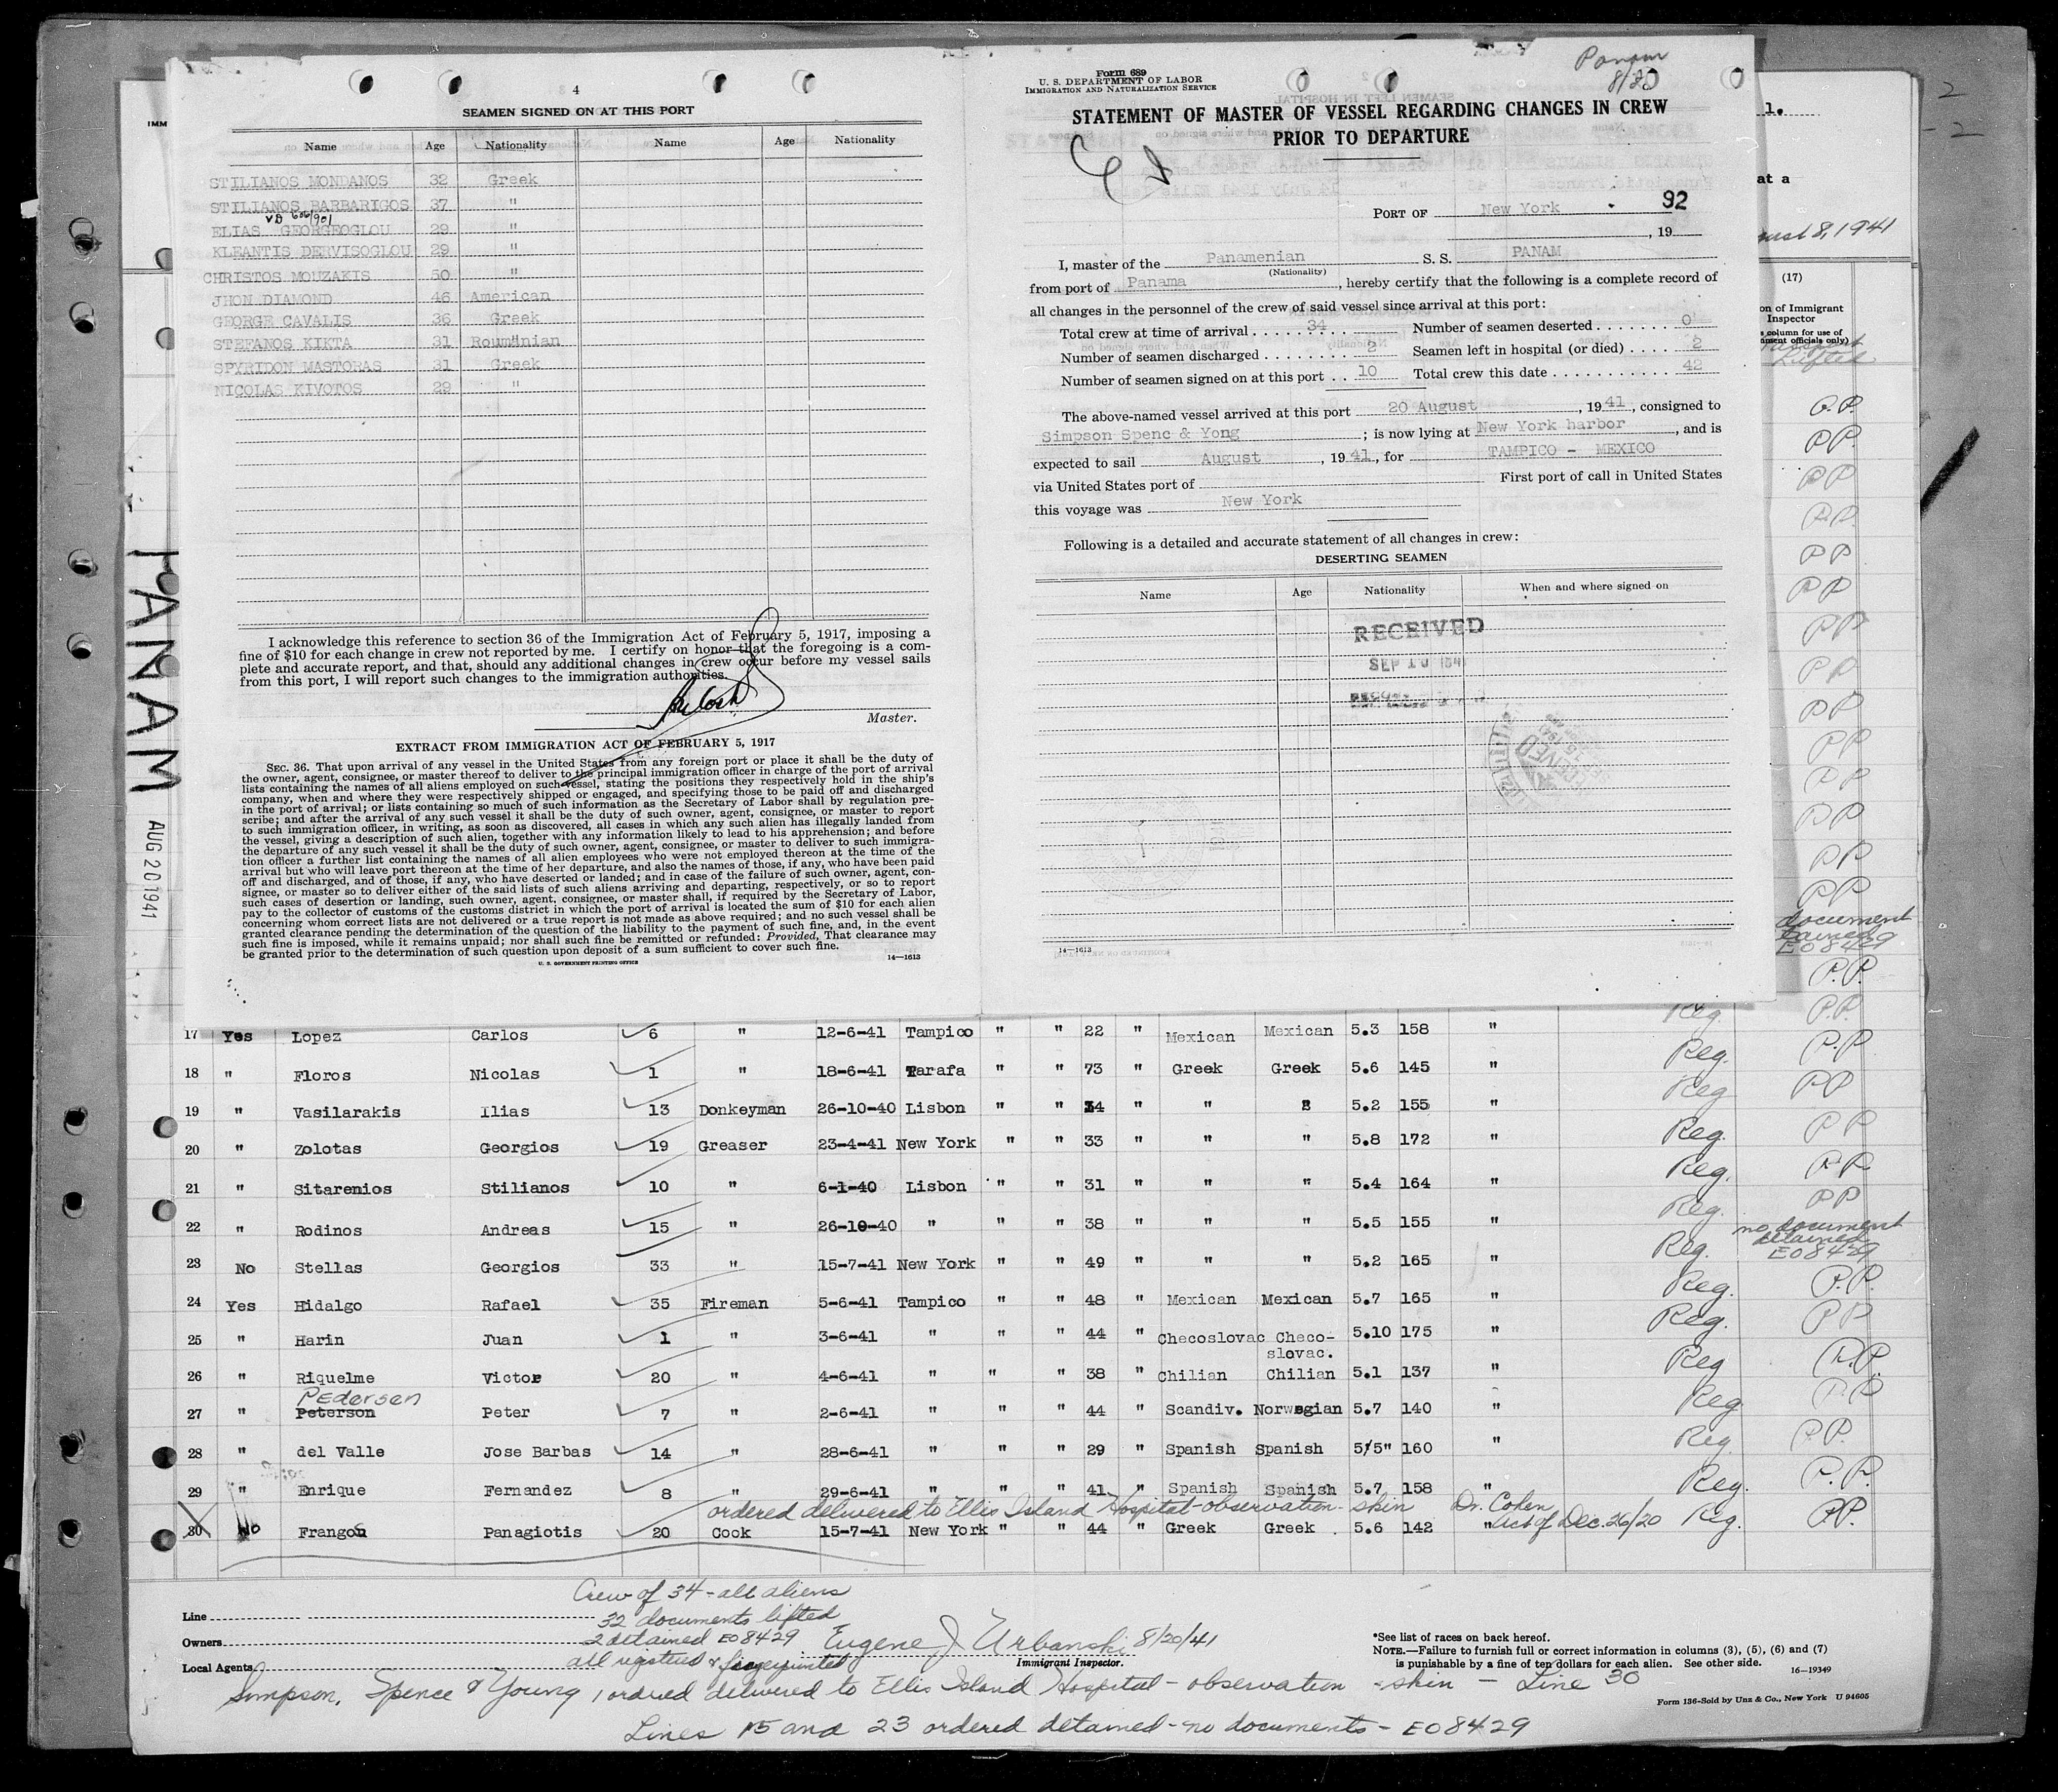 4
SEAMEN SIGNED ON AT THIS PORT
Name Age Nationality Name Age Nationality
STILIANOS MONDANOS 32 Greek
STILIANOS BARBARIGOS 37 "
ELIAS GEORGEOGLOU 29 "
KLEANTIS DERVISOGLOU 29 "
CHRISTOS MOUZAKIS 50 "
JHON DIAMOND 46 American
GEORGE CAVALIS 36 Greek
STEFANOS KIKTA 31 Roumanian
SPYRIDON MASTORAS 31 Greek
NICOLAS KIVOTOS 29 "
I acknowledge this reference to section 36 of the Immigration Act of February 5, 1917, imposing a
fine of $10 for each change in crew not reported by me. I certify on honor that the foregoing is a com-
plete and accurate report, and that, should any additional changes in crew occur before my vessel sails
from this port, I will report such changes to the immigration authorities.
Master.
EXTRACT FROM IMMIGRATION ACT OF FEBRUARY 5, 1917
SEC. 36. That upon arrival of any vessel in the United States from any foreign port or place it shall be the duty of
the owner, agent, consignee, or master thereof to deliver to the principal immigration officer in charge of the port of arrival
lists containing the names of all aliens employed on such vessel, stating the positions they respectively hold in the ship's
company, when and where they were respectively shipped or engaged, and specifying those to be paid off and discharged
in the port of arrival; or lists containing so much of such information as the Secretary of Labor shall by regulation pre-
scribe; and after the arrival of any such vessel it shall be the duty of such owner, agent, consignee, or master to report
to such immigration officer, in writing, as soon as discovered, all cases in which any such alien has illegally landed from
the vessel, giving a description of such alien, together with any information likely to lead to his apprehension; and before
the departure of any such vessel it shall be the duty of such owner, agent, consignee, or master to deliver to such immigra-
tion officer a further list containing the names of all alien employees who were not employed thereon at the time of the
arrival but who will leave port thereon at the time of her departure, and also the names of those, if any, who have been paid
off and discharged, and of those, if any, who have deserted or landed; and in case of the failure of such owner, agent, con-
signee, or master so to deliver either of the said lists of such aliens arriving and departing, respectively, or so to report
such cases of desertion or landing, such owner, agent, consignee, or master shall, if required by the Secretary of Labor,
pay to the collector of customs of the customs district in which the port of arrival is located the sum of $10 for each alien
concerning whom correct lists are not delivered or a true report is not made as above required; and no such vessel shall be
granted clearance pending the determination of the question of the liability to the payment of such fine, and, in the event
such fine is imposed, while it remains unpaid; nor shall such fine be remitted or refunded: Provided, That clearance may
be granted prior to the determination of such question upon deposit of a sum sufficient to cover such fine.
U. S. GOVERNMENT PRINTING OFFICE
14—1613
Form 689
U. S. DEPARTMENT OF LABOR
IMMIGRATION AND NATURALIZATION SERVICE
Panam
8/20
STATEMENT OF MASTER OF VESSEL REGARDING CHANGES IN CREW
PRIOR TO DEPARTURE
PORT OF New York 92
, 19
I, master of the Panamenian S. S. PANAM
(Nationality)
from port of Panama, hereby certify that the following is a complete record of
all changes in the personnel of the crew of said vessel since arrival at this port:
Total crew at time of arrival 34 Number of seamen deserted 0
Number of seamen discharged 2 Seamen left in hospital (or died) 2
Number of seamen signed on at this port 10 Total crew this date 42
The above-named vessel arrived at this port 20 August, 1941, consigned to
Simpson Spenc & Yong; is now lying at New York harbor, and is
expected to sail August, 1941, for TAMPICO - MEXICO
via United States port of First port of call in United States
this voyage was New York
Following is a detailed and accurate statement of all changes in crew:
DESERTING SEAMEN
Name Age Nationality When and where signed on
RECEIVED
SEP 10 1941
14—1613
IMM
PANAM
AUG 20 1941
l.
at a
ust 8, 1941
(17)
on of Immigrant
Inspector
column for use of
ment officials only)
P.P.
document
E08429
17 Yes Lopez Carlos 6 " 12-6-41 Tampico " " 22 " Mexican Mexican 5.3 158 " Reg. P.P.
18 " Floros Nicolas 1 " 18-6-41 Tarafa " " 73 " Greek Greek 5.6 145 " Reg. PP
19 " Vasilarakis Ilias 13 Donkeyman 26-10-40 Lisbon " " 34 " " " 5.2 155 " Reg PP
20 " Zolotas Georgios 19 Greaser 23-4-41 New York " " 33 " " " 5.8 172 " Reg. PP
21 " Sitarenios Stilianos 10 " 6-1-40 Lisbon " " 31 " " " 5.4 164 " Reg. PP
22 " Rodinos Andreas 15 " 26-10-40 " " " 38 " " " 5.5 155 " Reg. PP
23 No Stellas Georgios 33 " 15-7-41 New York " " 49 " " " 5.2 165 " Reg. no document detained E08429
24 Yes Hidalgo Rafael 35 Fireman 5-6-41 Tampico " " 48 " Mexican Mexican 5.7 165 " Reg. P.P.
25 " Harin Juan 1 " 3-6-41 " " " 44 " Checoslovac Checo-slovac. 5.10 175 " Reg. PP
26 " Riquelme Victor 20 " 4-6-41 " " " 38 " Chilian Chilian 5.1 137 " Reg P.P.
Pedersen
27 " Peterson Peter 7 " 2-6-41 " " " 44 " Scandiv. Norwegian 5.7 140 " Reg PP
28 " del Valle Jose Barbas 14 " 28-6-41 " " " 29 " Spanish Spanish 5/5" 160 " Reg. P.P.
29 " Enrique Fernandez 8 " 29-6-41 " " " 41 " Spanish Spanish 5.7 158 " Reg. P.P.
ordered delivered to Ellis Island Hospital-observation-skin Dr. Cohen
30 No Frangos Panagiotis 20 Cook 15-7-41 New York " " 44 " Greek Greek 5.6 142 " Act of Dec. 26/20 Reg. P.P.
Crew of 34 - all aliens
Line 32 documents lifted
Owners 2 detained E08429 Eugene J Urbanski 8/20/41
Local Agents all registered & fingerprinted Immigrant Inspector.
*See list of races on back hereof.
NOTE.—Failure to furnish full or correct information in columns (3), (5), (6) and (7)
is punishable by a fine of ten dollars for each alien. See other side.
16—19349
Simpson, Spence & Young 1 ordered delivered to Ellis Island Hospital - observation - skin - Line 30
Form 136-Sold by Unz & Co., New York U 94605
Lines 15 and 23 ordered detained - no documents - E08429